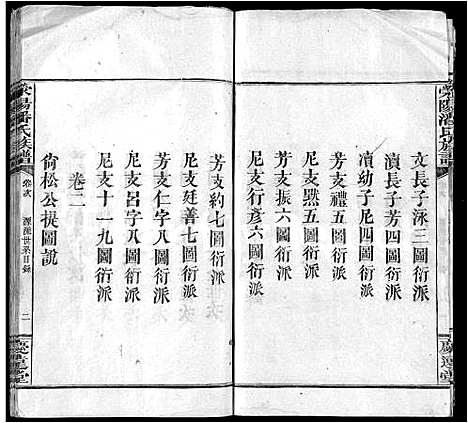 滎陽潘氏族譜
文長子泳三圖衍派
濱長子芳四圖衍派
濆幼子尼四圖衍派
芳支禮五圖衍派
尼支㷱五圖衍派
芳支振六圖衍派
尼支行彥六圖衍派
慶遠堂
芳支約七圖衍派
尼支廷善七圖衍派
芳支仁字八圖衍派
尼支呂字八圖衍派
尼支十一九圖衍派
卷二
尙松公擬圖說
滎陽潘氏族譜
卷次
源流世系目錄
二
慶遠堂